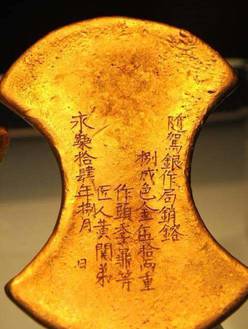 随駕銀作局銷鎔
捌成色金伍拾両重
作頭李鼎等
匠人黄関弟
永樂拾肆年捌月　日